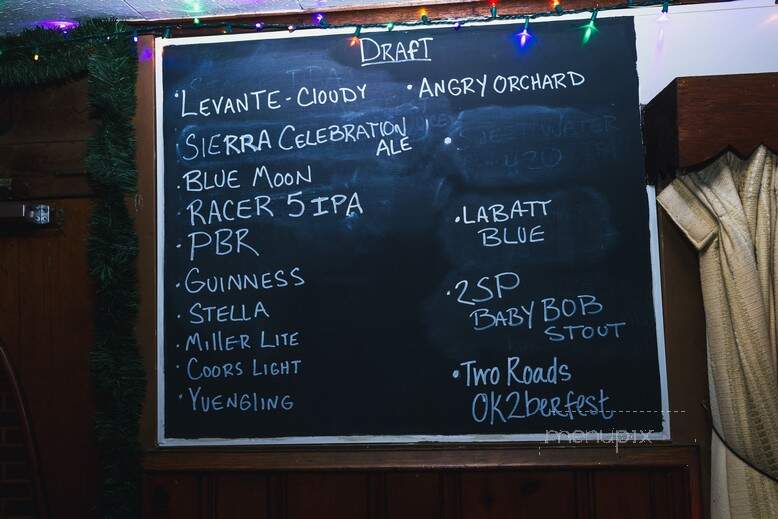 DRAFT
• LEVANTE - CLOUDY
SIERRA CELEBRATION
ALE
• BLUE MOON
• RACER 5 IPA
• PBR
• GUINNESS
• STELLA
• MILLER LITE
• COORS LIGHT
• YUENGLING
• ANGRY ORCHARD
•
• LABATT
BLUE
• 2SP
BABY BOB
STOUT
• Two Roads
OK2berfest
menupix